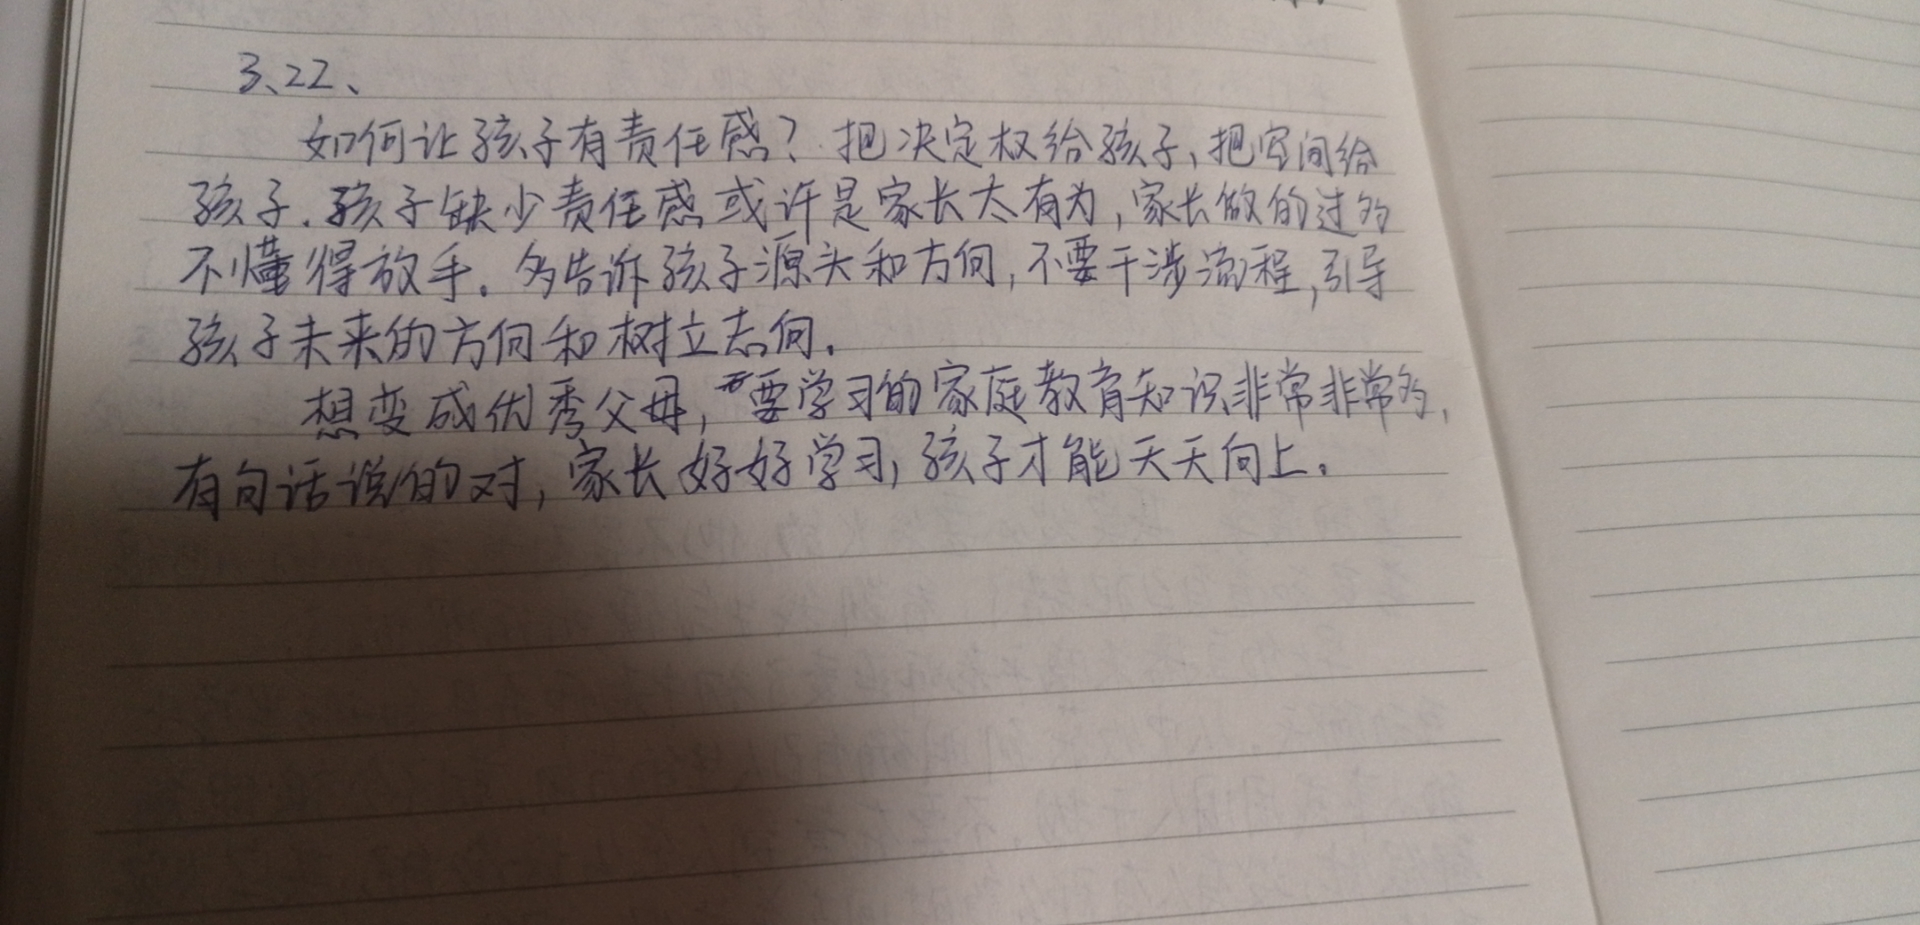 3、22、
如何让孩子有责任感？把决定权给孩子、把空间给
孩子.孩子缺少责任感或许是家长太有为,家长做的过多
不懂得放手。多告诉孩子源头和方向,不要干涉流程,引导
孩子未来的方向和树立志向。
想变成优秀父母,要学习的家庭教育知识非常非常多,
有句话说的对,家长好好学习,孩子才能天天向上。